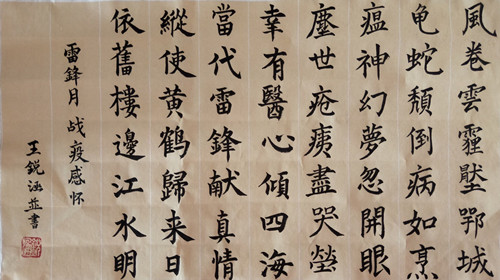 風卷雲霾鄂城
龟蛇頹倒病如烹
瘟神幻夢忽開眼
塵世疮痍盡哭
幸有醫心傾四海
當代雷鋒献真情
縱使黄鶴歸来日
依舊樓邊江水明
雷鋒月 战疫感怀
王銳涵並書